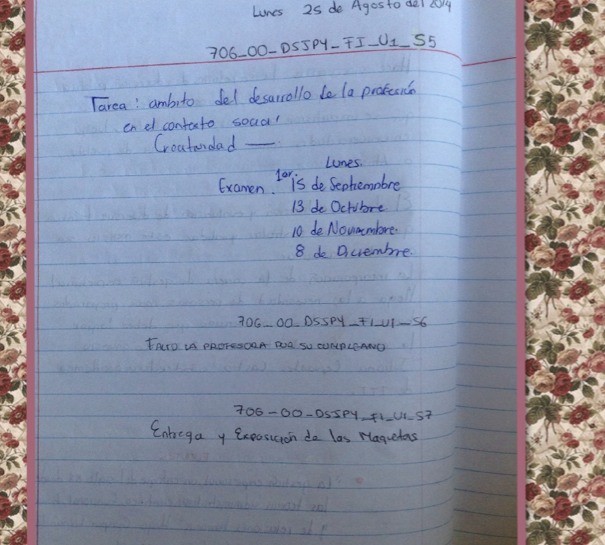 Lunes 25 de Agosto del 2014
706_00_DSSPY_FI_U1_S5
Tarea: ambito del desarrollo de la profesión
en el contexto social
Creatandad —.
Lunes.
Examen. 1er. 15 de Septiembre
13 de Octubre
10 de Noviembre.
8 de Diciembre.
706_00_DSSPY_FI_U1_S6
FALTO LA PROFESORA POR SU CUMPLEAÑO
706-00-DSSPY_FI_U1_S7
Entrega y Exposición de las Maquetas